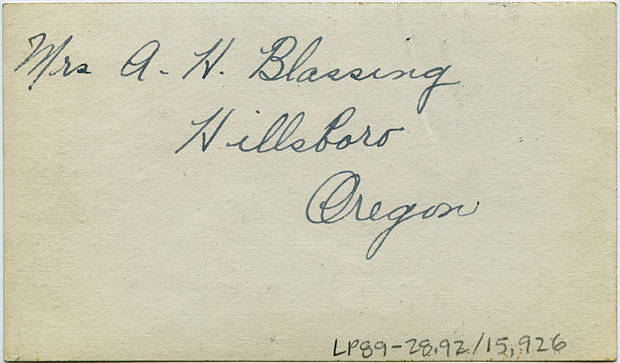 Mrs A. H. Blassing
Hillsboro
Oregon
LP89-28.92/15,926